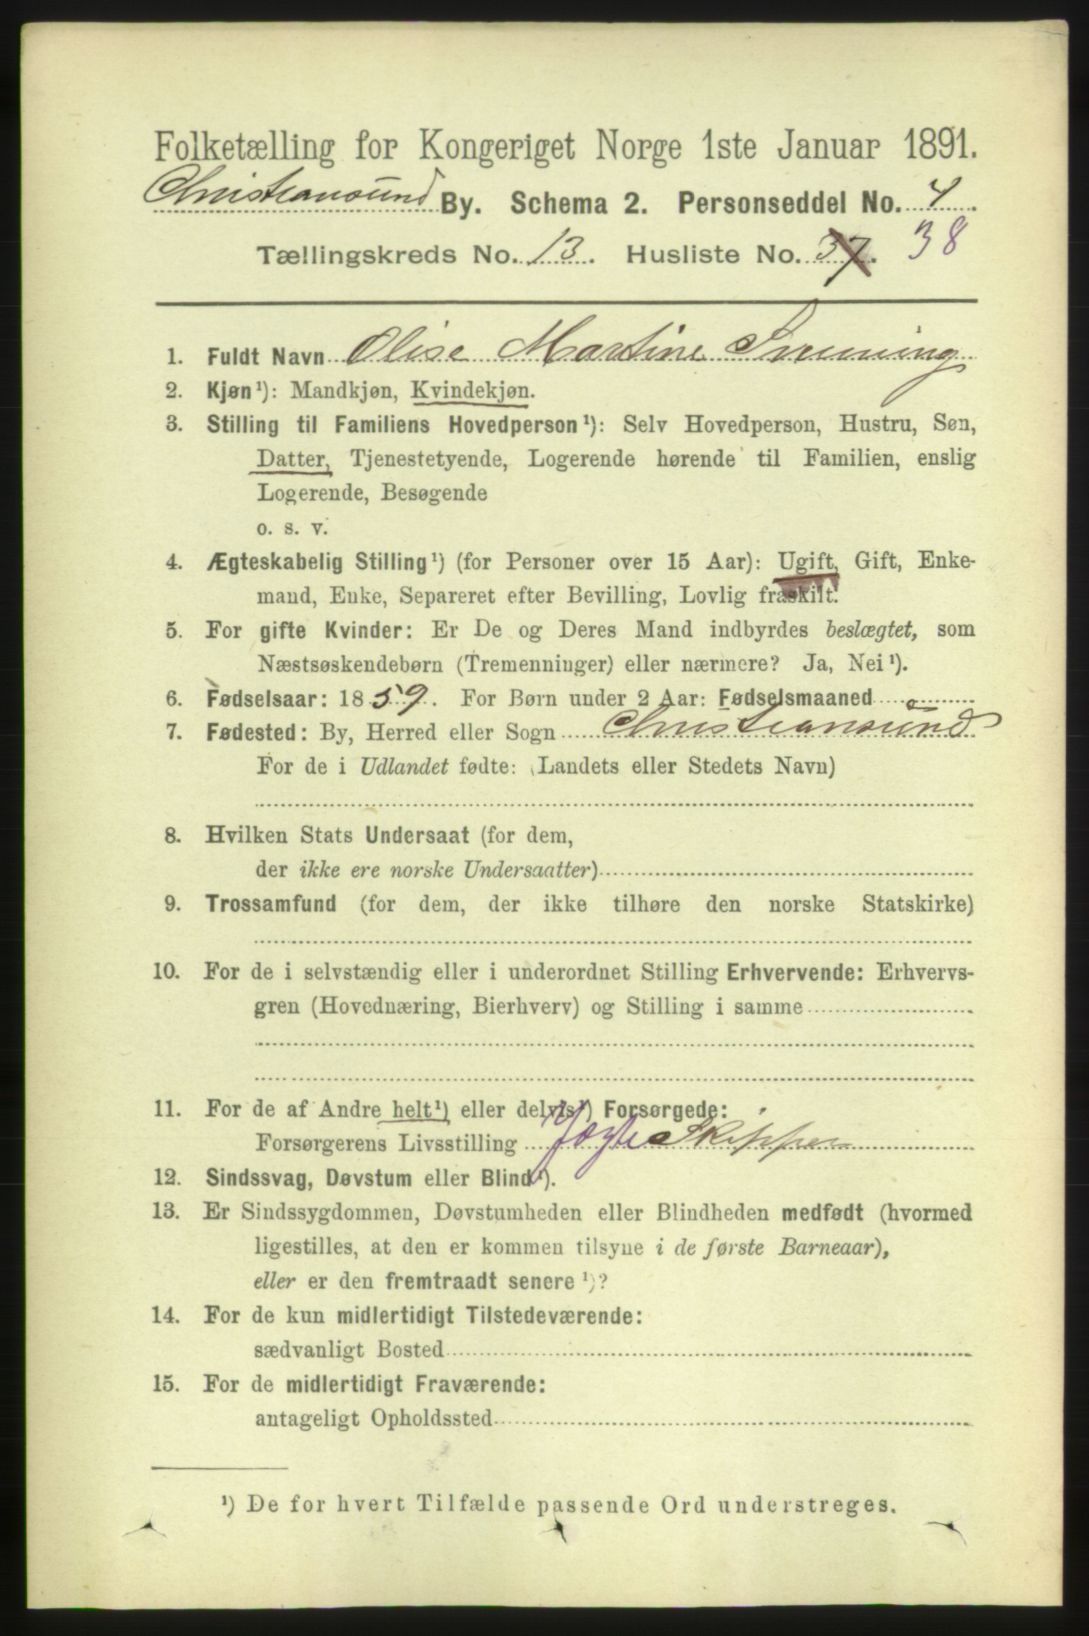 Folketælling for Kongeriget Norge 1ste Januar 1891.
Christiansund By. Schema 2. Personseddel No. 4.
Tællingskreds No. 13. Husliste No. 37. 38
1. Fuldt Navn Olise Martine
2. Kjøn¹): Mandkjøn, Kvindekjøn.
3. Stilling til Familiens Hovedperson¹): Selv Hovedperson, Hustru, Søn,
Datter, Tjenestetyende, Logerende hørende til Familien, enslig
Logerende, Besøgende
o. s. v.
4. Ægteskabelig Stilling¹) (for Personer over 15 Aar): Ugift, Gift, Enke-
mand, Enke, Separeret efter Bevilling, Lovlig fraskilt.
5. For gifte Kvinder: Er De og Deres Mand indbyrdes beslægtet, som
Næstsøskendebørn (Tremenninger) eller nærmere? Ja, Nei¹).
6. Fødselsaar: 1859. For Børn under 2 Aar: Fødselsmaaned
7. Fødested: By, Herred eller Sogn Christiansund
For de i Udlandet fødte: (Landets eller Stedets Navn)
8. Hvilken Stats Undersaat (for dem,
der ikke ere norske Undersaatter)
9. Trossamfund (for dem, der ikke tilhøre den norske Statskirke)
10. For de i selvstændig eller i underordnet Stilling Erhvervende: Erhvervs-
gren (Hovednæring, Bierhverv) og Stilling i samme
11. For de af Andre helt¹) eller delvis¹) Forsørgede:
Forsørgerens Livsstilling Jægte Skipper
12. Sindssvag, Døvstum eller Blind¹).
13. Er Sindssygdommen, Døvstumheden eller Blindheden medfødt (hvormed
ligestilles, at den er kommen tilsyne i de første Barneaar),
eller er den fremtraadt senere¹)?
14. For de kun midlertidigt Tilstedeværende:
sædvanligt Bosted
15. For de midlertidigt Fraværende:
antageligt Opholdssted
¹) De for hvert Tilfælde passende Ord understreges.